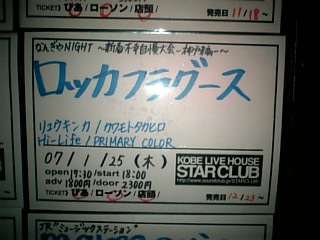 TICKET ぴあ / ローソン / 店頭 発売日 11/18~
なんぎやNIGHT ~新春不幸自慢大会-神戸編-~
ロッカフラグース
リュウキンカ / カワモトタカヒロ
Hi-Life / PRIMARY COLOR
07/1/25 (木)
open 17:30/start 18:00
adv 1800円/door 2300円
TICKET ぴあ / ローソン / 店頭
KOBE LIVE HOUSE
STARCLUB
発売日 12/23~
JR"ミュージックステーション"